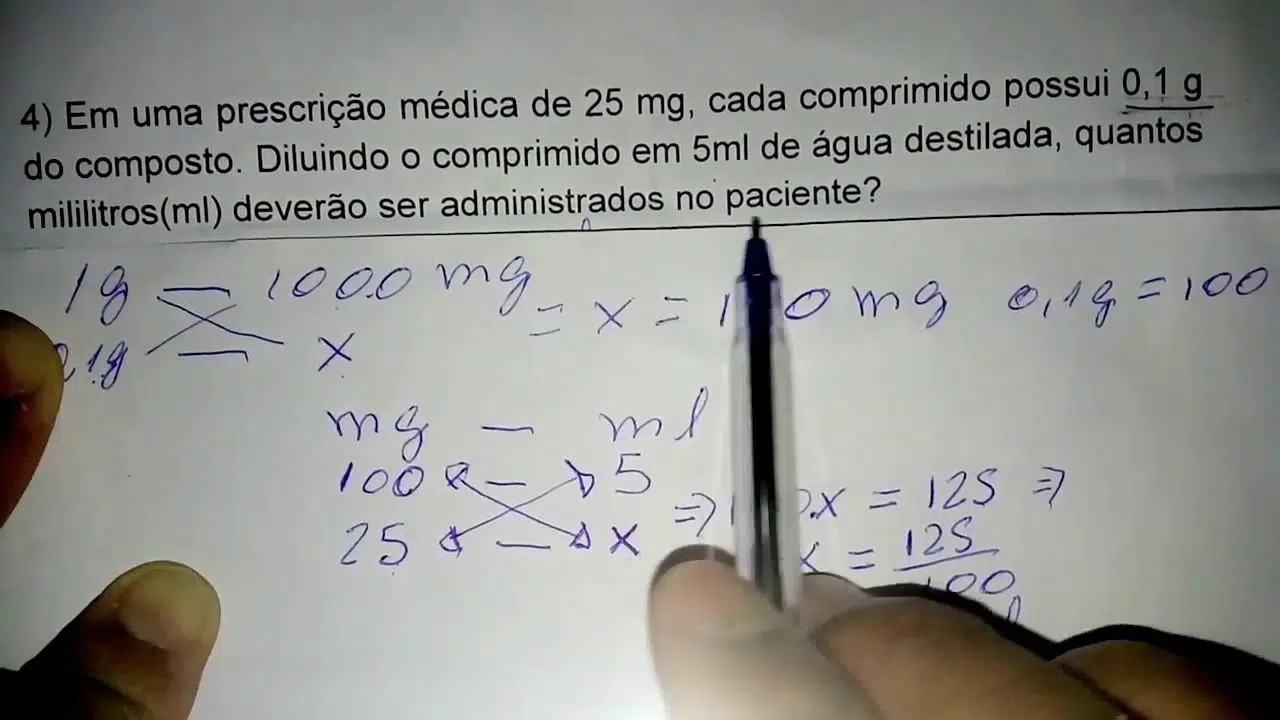 4) Em uma prescrição médica de 25 mg, cada comprimido possui 0,1 g
do composto. Diluindo o comprimido em 5ml de água destilada, quantos
mililitros(ml) deverão ser administrados no paciente?
1g — 1000 mg = x = mg 0,1g = 100
1g — x
mg — ml
100 — 5
25 — x ⇒ .x = 125 ⇒
x = 125
100